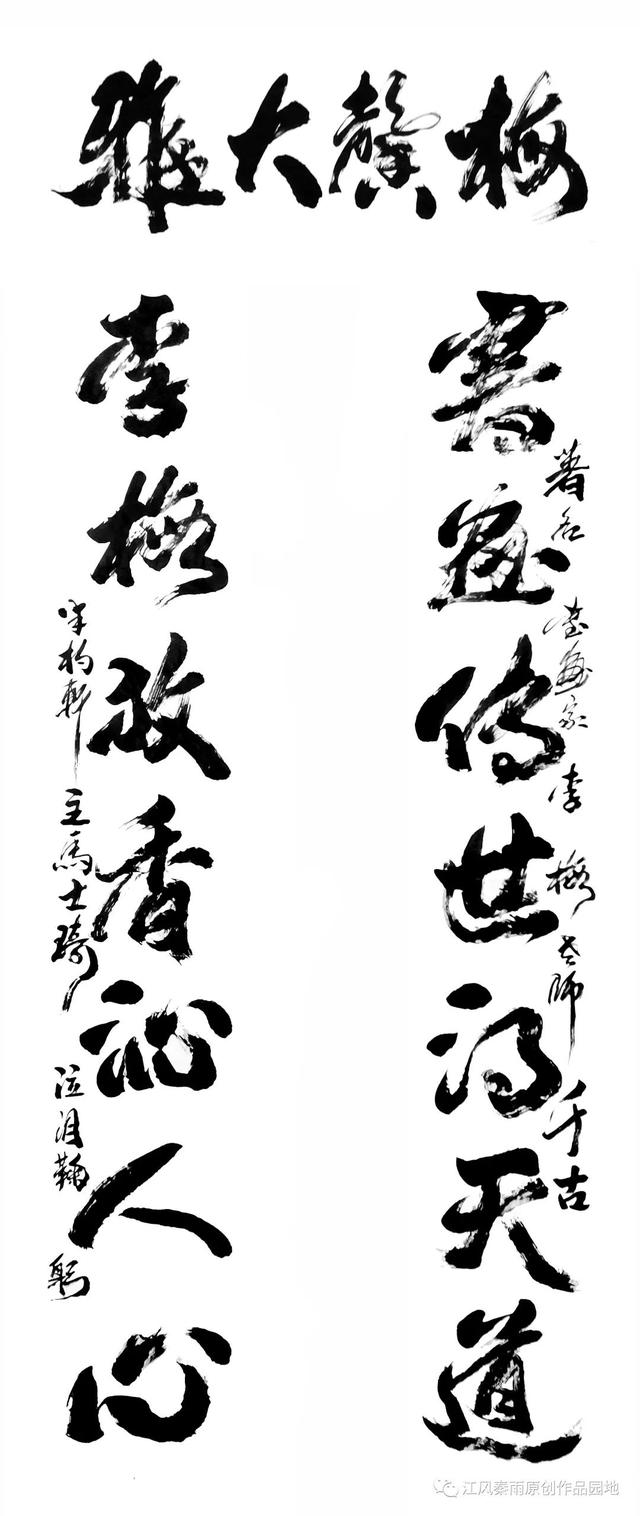 梅馨大雅
書畫傳世得天道
著名書畫家李梅老師千古
李梅放香沁人心
半杓軒主馬士琦泣泪鞠躬
江风秦雨原创作品园地